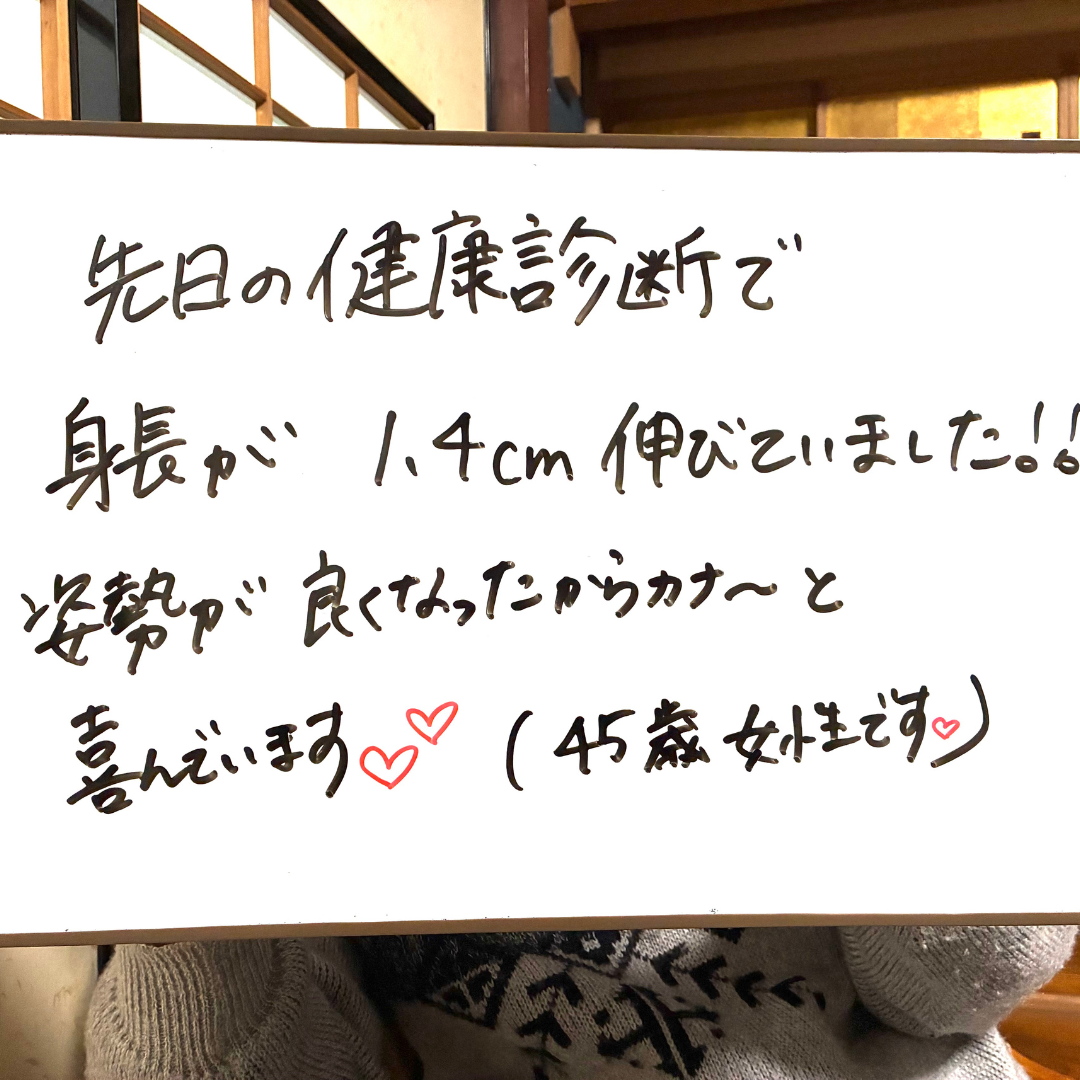 先日の健康診断で
身長が 1.4cm 伸びていました!!
姿勢が 良くなったからカナ〜と
喜んでいます♡♡ (45歳 女性です♡)